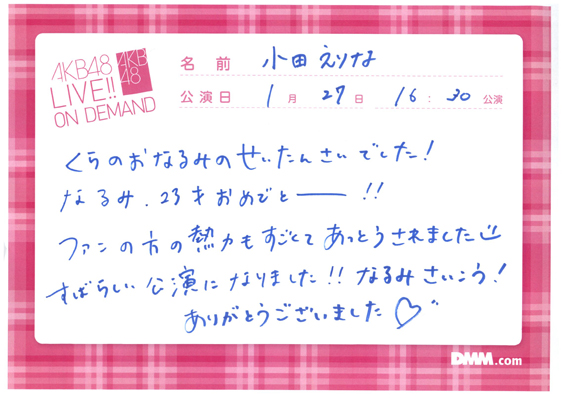 AKB48
LIVE!!
ON DEMAND
AKB
48
名前 小田えりな
公演日 1月27日 16:30公演
くらのおなるみのせいたんさいでした!
なるみ、23才おめでとーー!!
ファンの方の熱力もすごくてあっとうされました
すばらしい公演になりました!!なるみさいこう!
ありがとうございました♡
DMM.com